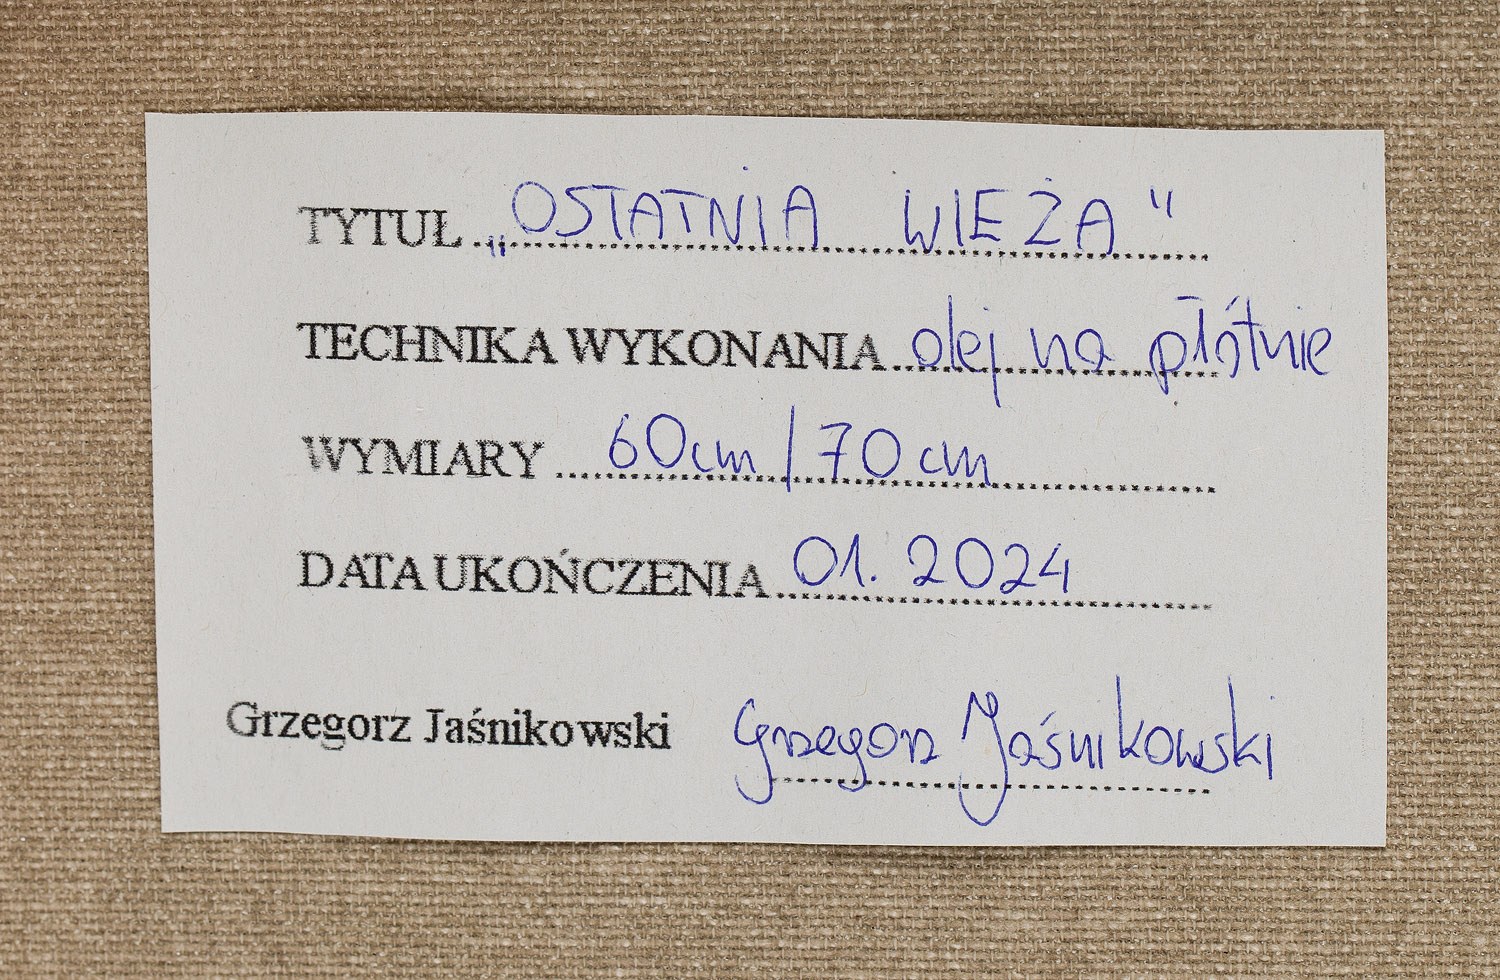 TYTUŁ „OSTATNIA WIEŻA"
TECHNIKA WYKONANIA olej na płótnie
WYMIARY 60cm / 70cm
DATA UKOŃCZENIA 01. 2024
Grzegorz Jaśnikowski Grzegorz Jaśnikowski